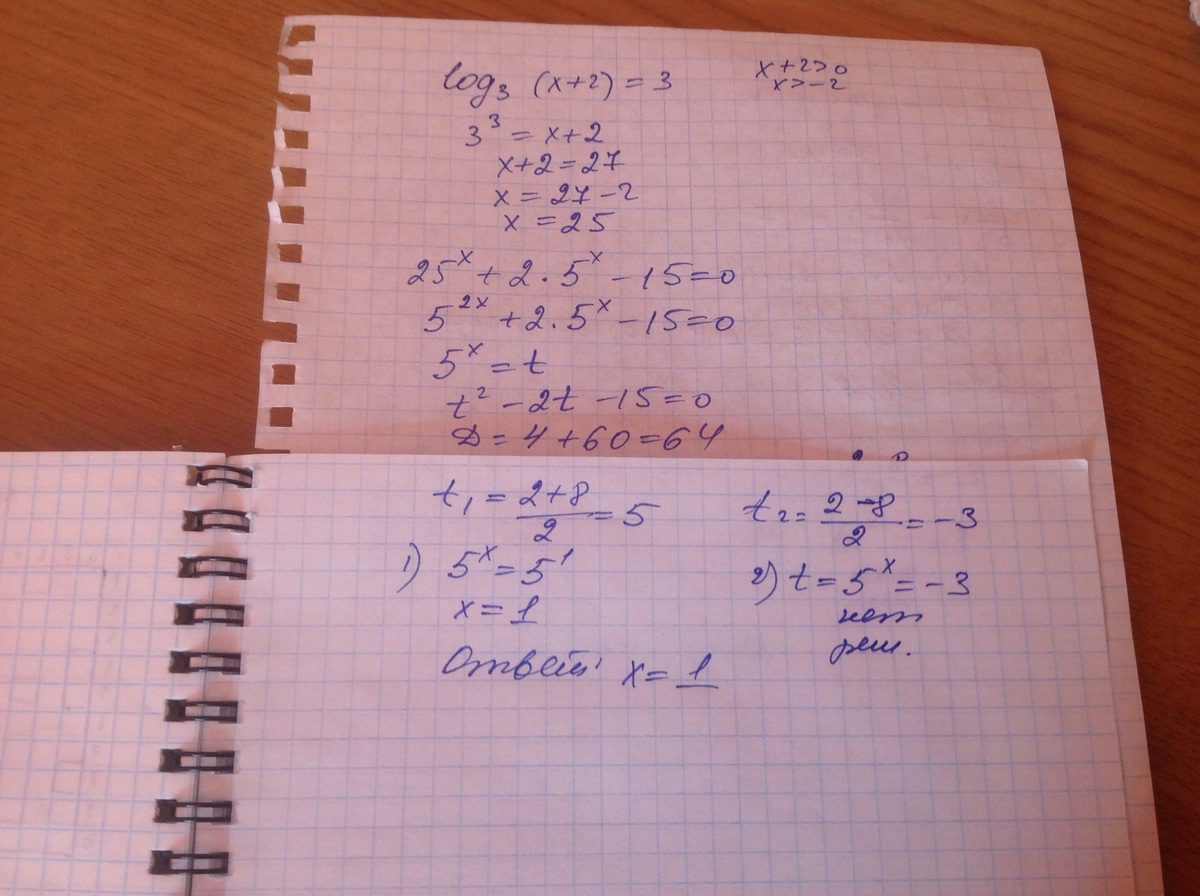 log₃ (x+2) = 3 x+2>0
x>-2
3³ = x+2
x+2=27
x = 27-2
x = 25
25ˣ + 2·5ˣ - 15=0
5²ˣ + 2·5ˣ - 15=0
5ˣ = t
t² - 2t - 15=0
D = 4+60=64
t₁ = (2+8)/2 = 5 t₂ = (2-8)/2 = -3
1) 5ˣ = 5¹ 2) t = 5ˣ = -3
x = 1 нет
реш.
Ответ: x = 1